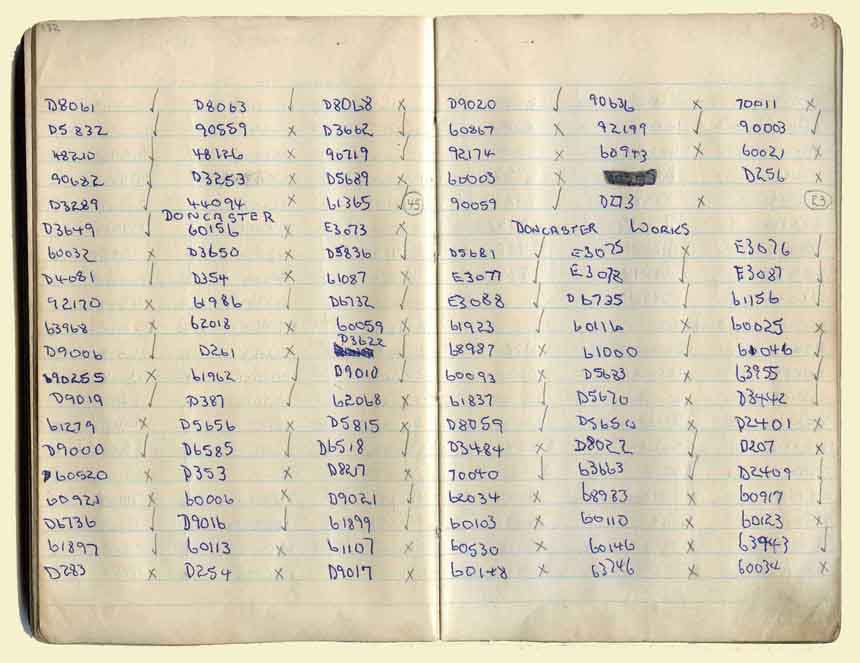 132
D8061 ✓ D8063 ✓ D8068 ×
D5832 ✓ 90559 × D3662 ✓
48210 × 48126 × 90719 ✓
90682 ✓ D3253 × D5689 ×
D3289 ✓ 44094 × 61365 ✓ 45
DONCASTER
D3649 ✓ 60156 × E3073 ×
60032 × D3650 × D5836 ✓
D4081 ✓ D354 × 61087 ×
92170 × 61986 ✓ D6732 ✓
63968 × 62018 × 60059 ×
D9006 ✓ D261 × D3622
90255 × 61962 ✓ D9010 ✓
D9019 ✓ D387 ✓ 62068 ×
61279 × D5656 × D5815 ×
D9000 ✓ D6585 ✓ D6518 ✓
60520 × D353 × D827 ×
60921 × 60006 × D9021 ✓
D6736 ✓ D9016 ✓ 61899 ✓
61897 ✓ 60113 × 61107 ×
D283 × D254 × D9017 ×
D9020 ✓ 90636 × 70011 ×
60867 × 92199 ✓ 90003 ✓
92174 × 60943 × 60021 ×
60003 × D256 ×
90059 ✓ D273 × E3
DONCASTER WORKS
D5681 ✓ E3075 × E3076 ✓
E3077 ✓ E3078 ✓ E3087 ✓
E3088 ✓ D6735 ✓ 61156 ✓
61923 ✓ 60116 × 60025 ×
68987 × 61000 ✓ 60046 ✓
60093 × D5633 × 63955 ✓
61837 ✓ D5670 × D3442 ✓
D8059 ✓ D5650 × D2401 ×
D3484 × D8022 ✓ D207 ×
70040 ✓ 63663 ✓ D2409 ✓
62034 × 68983 × 60917 ✓
60103 × 60110 × 60123 ×
60530 × 60146 × 63943 ✓
60148 × 63746 × 60034 ×